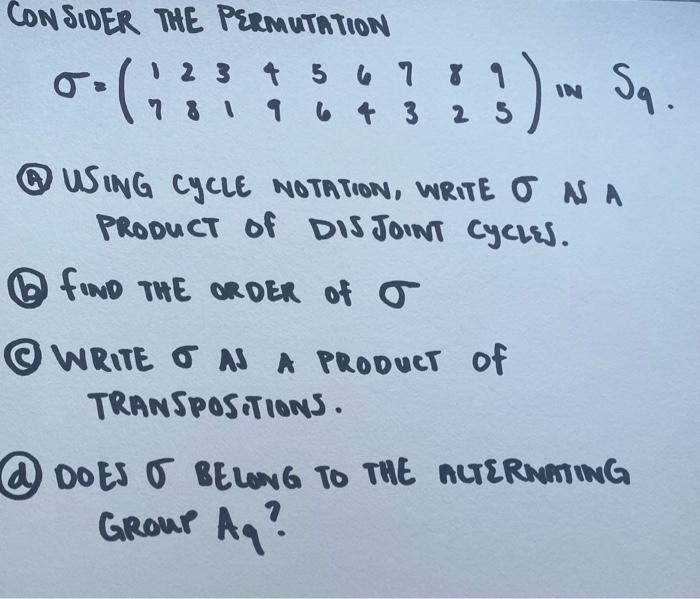 CONSIDER THE PERMUTATION
σ = ( 1 2 3 4 5 6 7 8 9
7 8 1 9 6 4 3 2 5 ) IN S9.
(A) USING CYCLE NOTATION, WRITE σ AS A
PRODUCT OF DISJOINT CYCLES.
(b) FIND THE ORDER OF σ
(C) WRITE σ AS A PRODUCT OF
TRANSPOSITIONS.
(d) DOES σ BELONG TO THE ALTERNATING
GROUP A9?